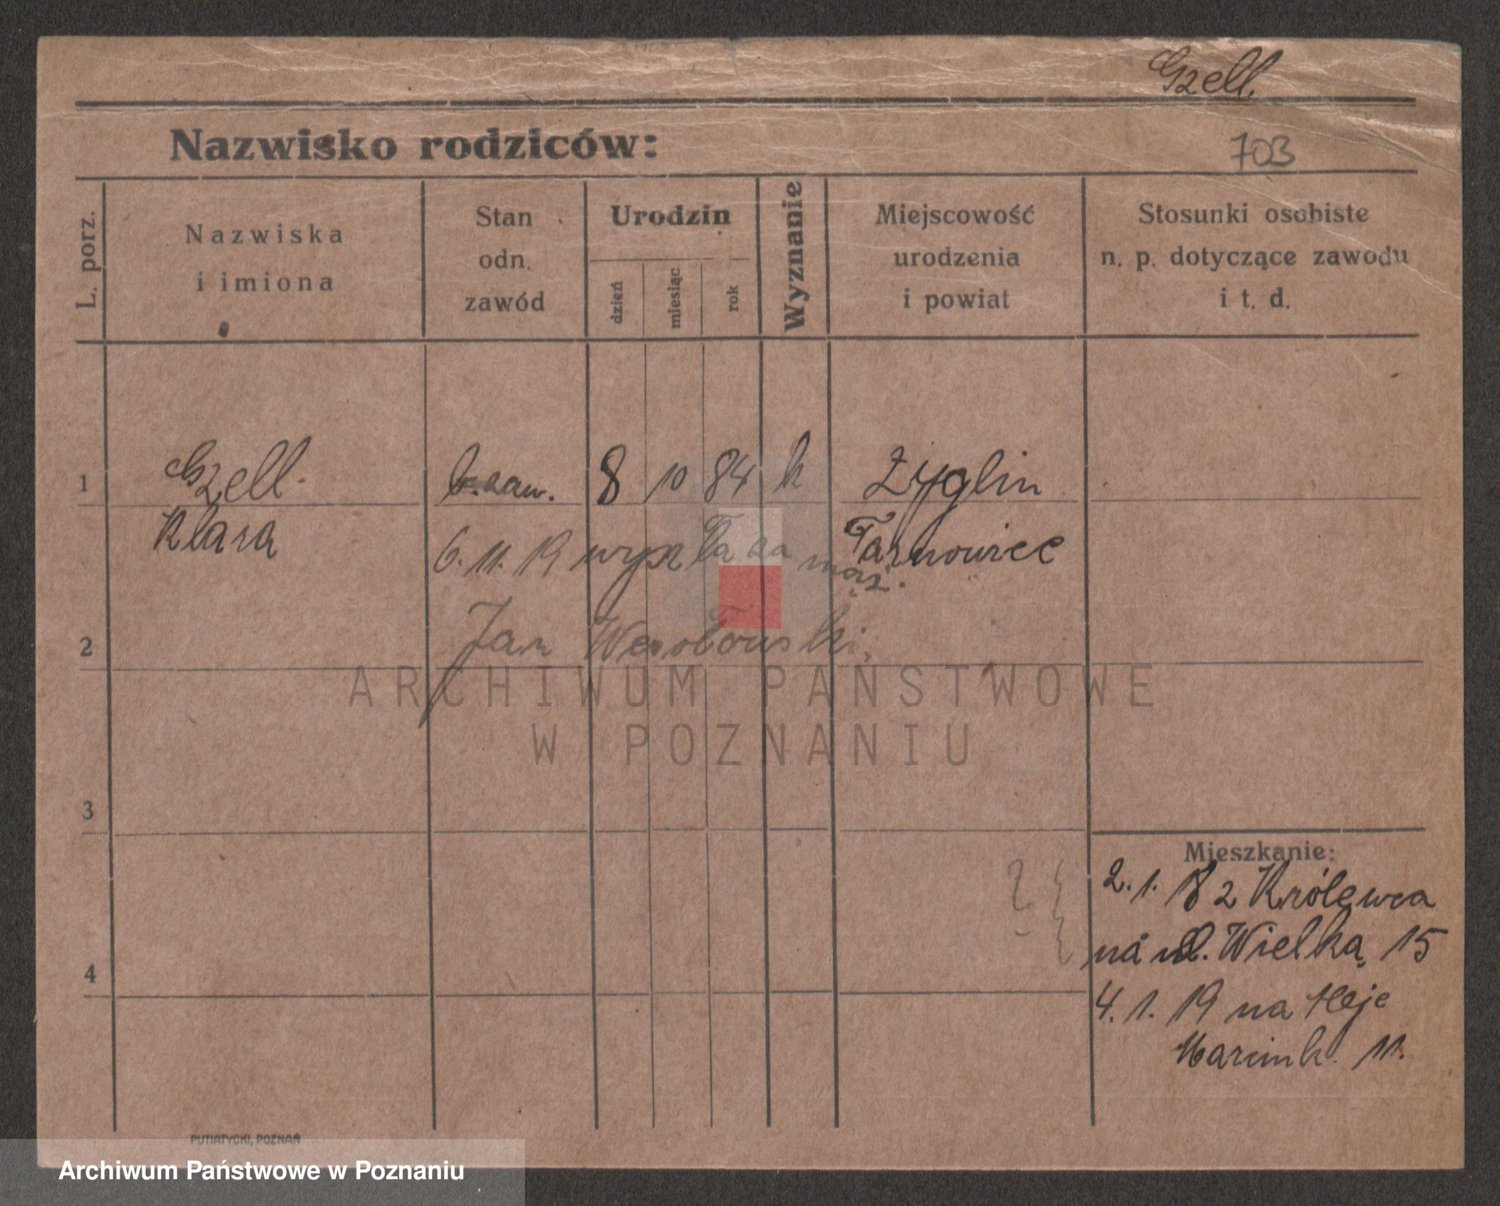 Gzell.
Nazwisko rodziców:
703
L. porz.
Nazwiska
i imiona
Stan
odn.
zawód
Urodzin
dzień
miesiąc
rok
Wyznanie
Miejscowość
urodzenia
i powiat
Stosunki osobiste
n. p. dotyczące zawodu
i t. d.
1
Gzell.
b. zaw.
8
10
84
k
Żyglin
Klara
6. 11. 19 wyszła za mąż.
Tarnowice
2
Jan Wesołowski.
ARCHIWUM PAŃSTWOWE
W POZNANIU
3
4
Mieszkanie:
2. 1. 18 z Królewca
na ul. Wielką 15
4. 1. 19 na Aleje
Marcink. 11.
PUTIATYCKI, POZNAŃ
Archiwum Państwowe w Poznaniu